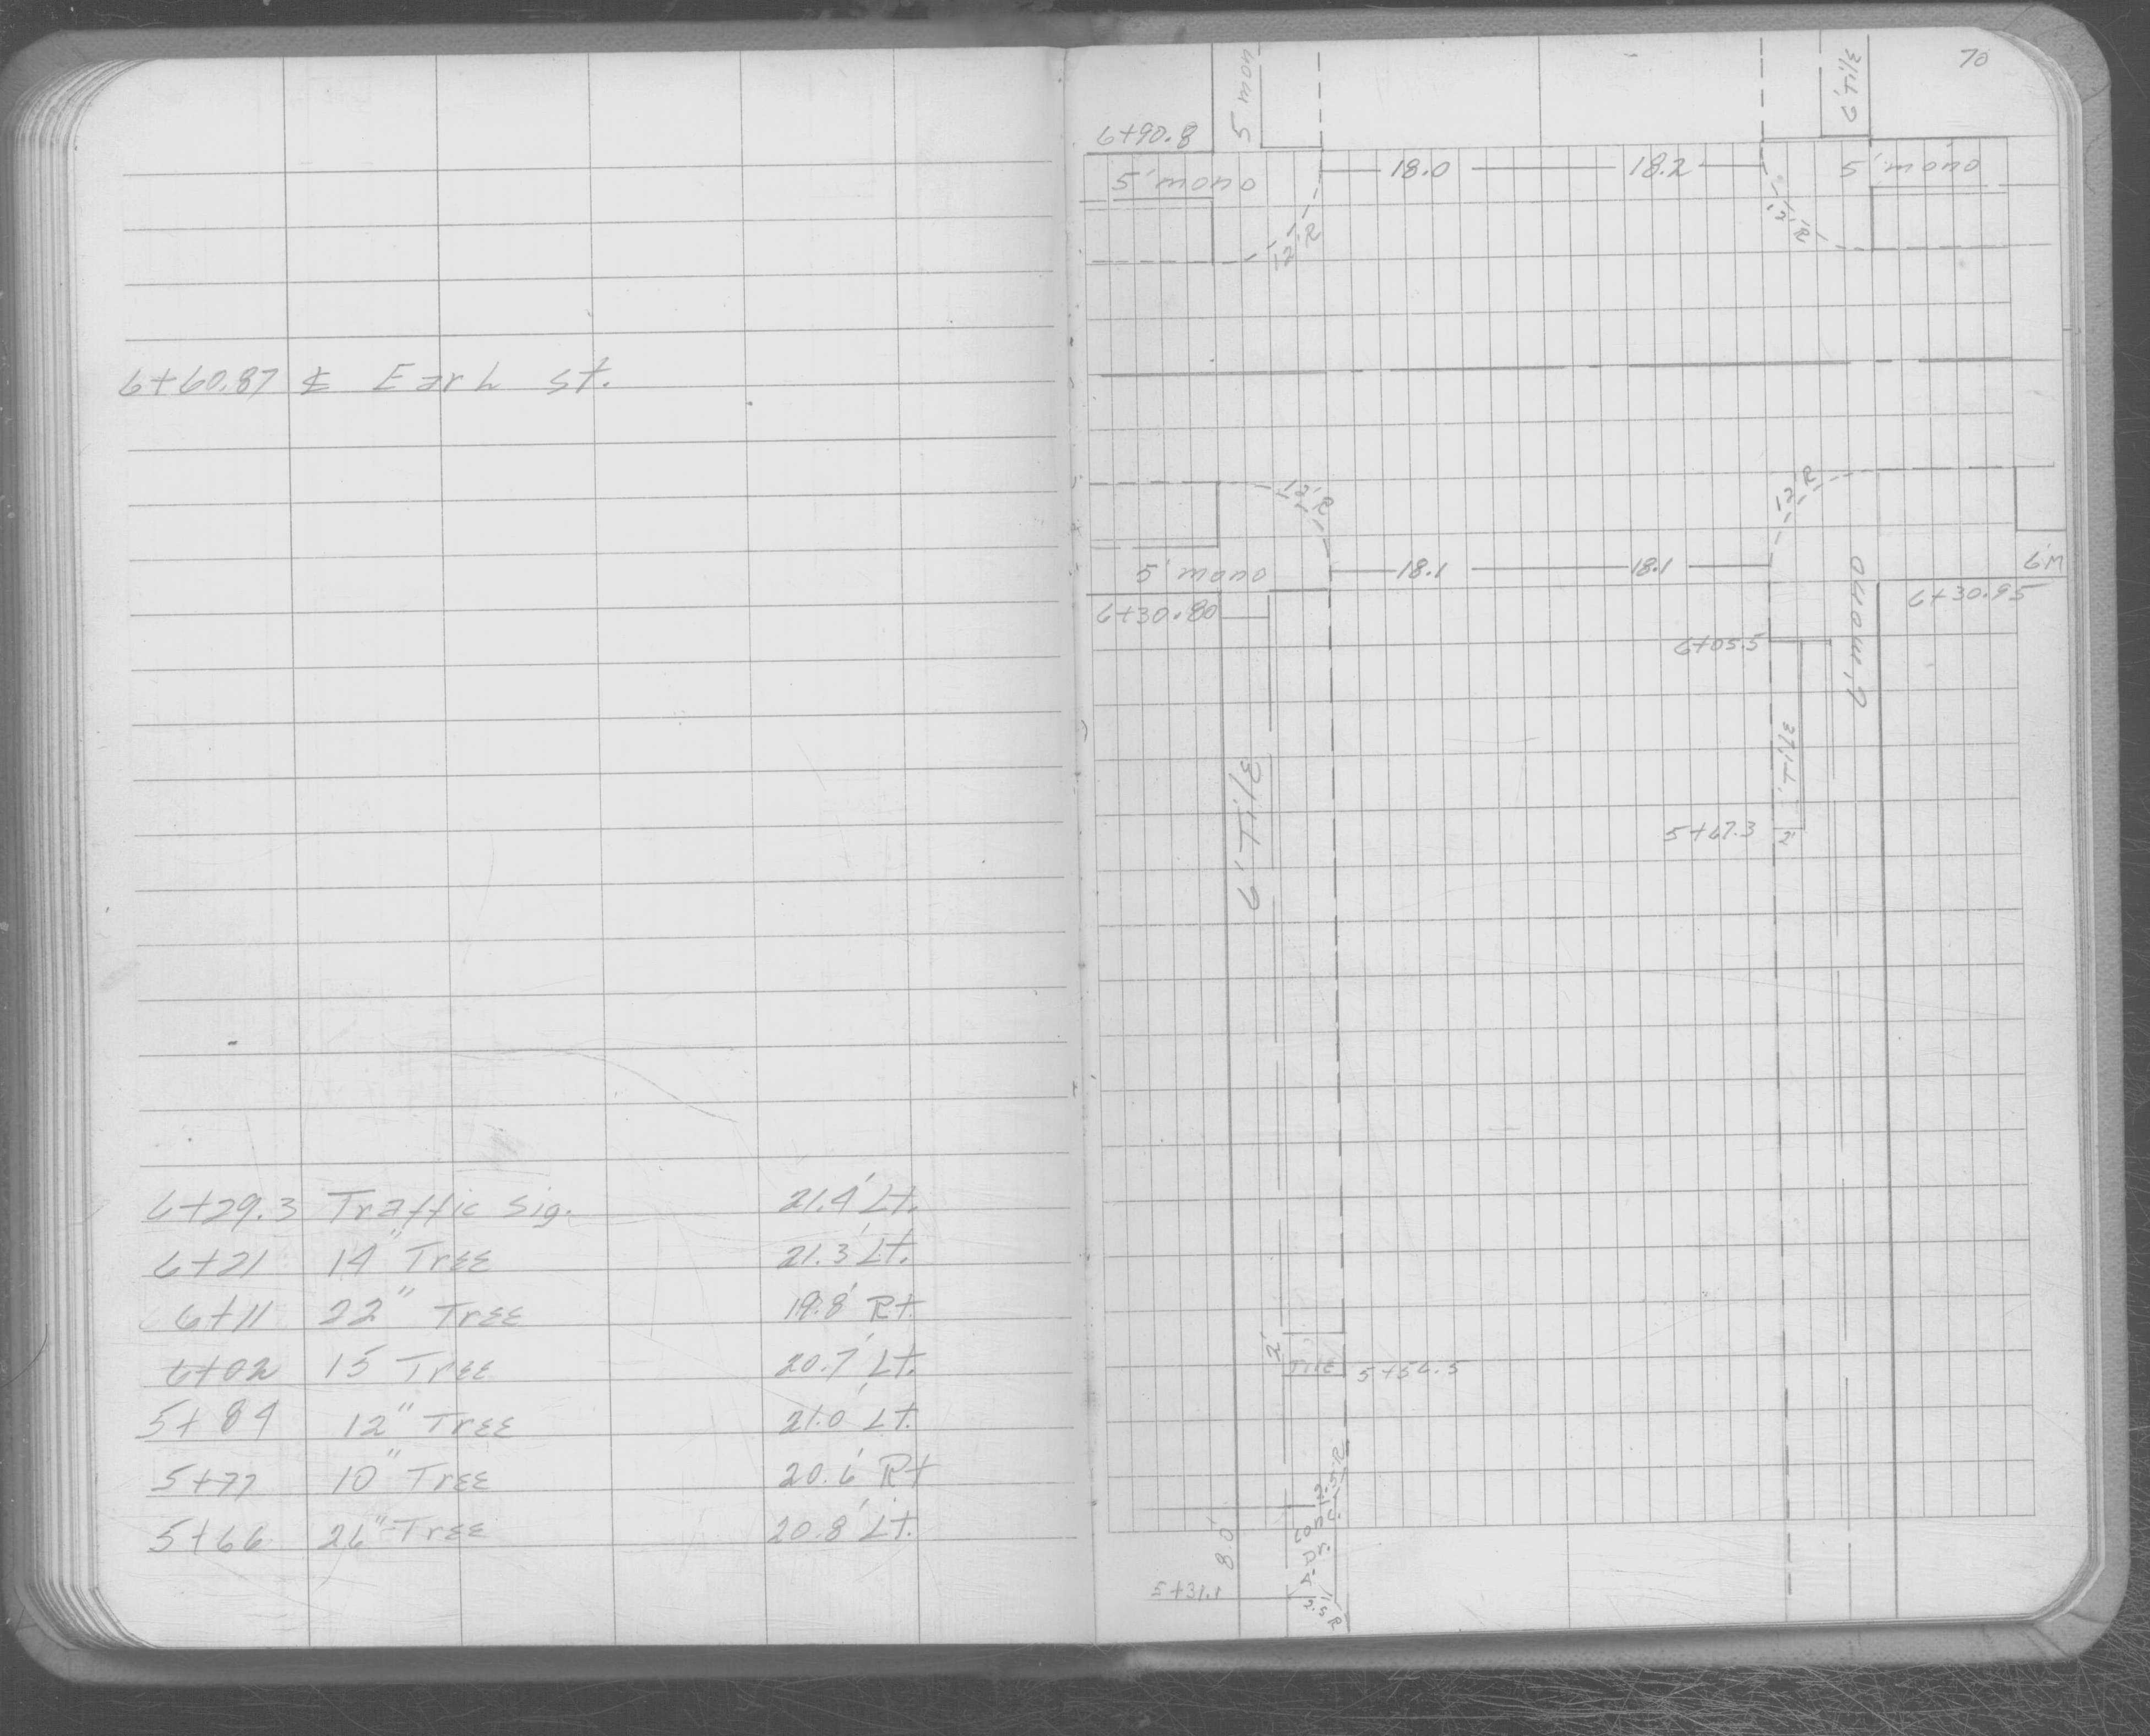 6+60.87 ℄ Earl St.
6+29.3 Traffic Sig. 21.4' Lt.
6+21 14" Tree 21.3' Lt.
6+11 22" Tree 19.8' Rt.
6+02 15 Tree 20.7' Lt.
5+84 12" Tree 21.0' Lt.
5+77 10" Tree 20.6' Rt
5+66 26" Tree 20.8' Lt.
70
5' mon
6' TILE
6+90.8
5' mono
18.0
18.2
5' mono
12' R
12' R
12' R
12' R
5' mono
18.1
18.1
6'M
6+30.80
6+30.95
6' mono
6+05.5
6' TILE
TILE
5+67.3
2'
2'
TILE
5+56.5
2.5' R
Conc.
A. Dr.
8.0'
5+31.1
2.5' R